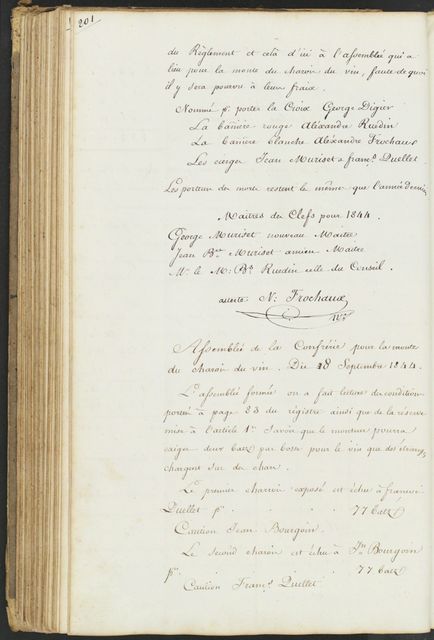 201
du Règlement et celà d'ici à l'assemblée qui a
lieu pour la monte du charoi du vin, faute de quoi
il y sera pourvu à leurs fraix.
Nommé p. porter la Croix George Digier
La banière rouge Alexandre Ruedin
La banière blanche Alexandre Frochaux
Les cierges Jean Muriset & franç.s Quellet.
Les porteurs des morts restent les même que l'année dernière
Maitres des Clefs pour 1844.
George Muriset nouveau Maitre
Jean B.te Muriset ancien Maitre
Mr. le M: B: Ruedin celle du Conseil.
atteste N: Frochaux
Assemblée de la Confrérie pour la monte
du charoi du vin. Du 18 Septembre 1844.
L'assemblé formée on a fait lecture des condition
portée à page 23 du régistre ainsi que de la réserve
mise à l'article 1er Savoir que le monteur pourra
exiger deux batz par bosse pour le vin que des étrangs
chargent sur des chars.
Le premier charroi exposé est échu à francois
Quellet p. 77 batz
Caution Jean Bourgoin.
Le second charoi est échu à Jn Bourgoin
pr. 77 batz
Caution Franç.s Quellet